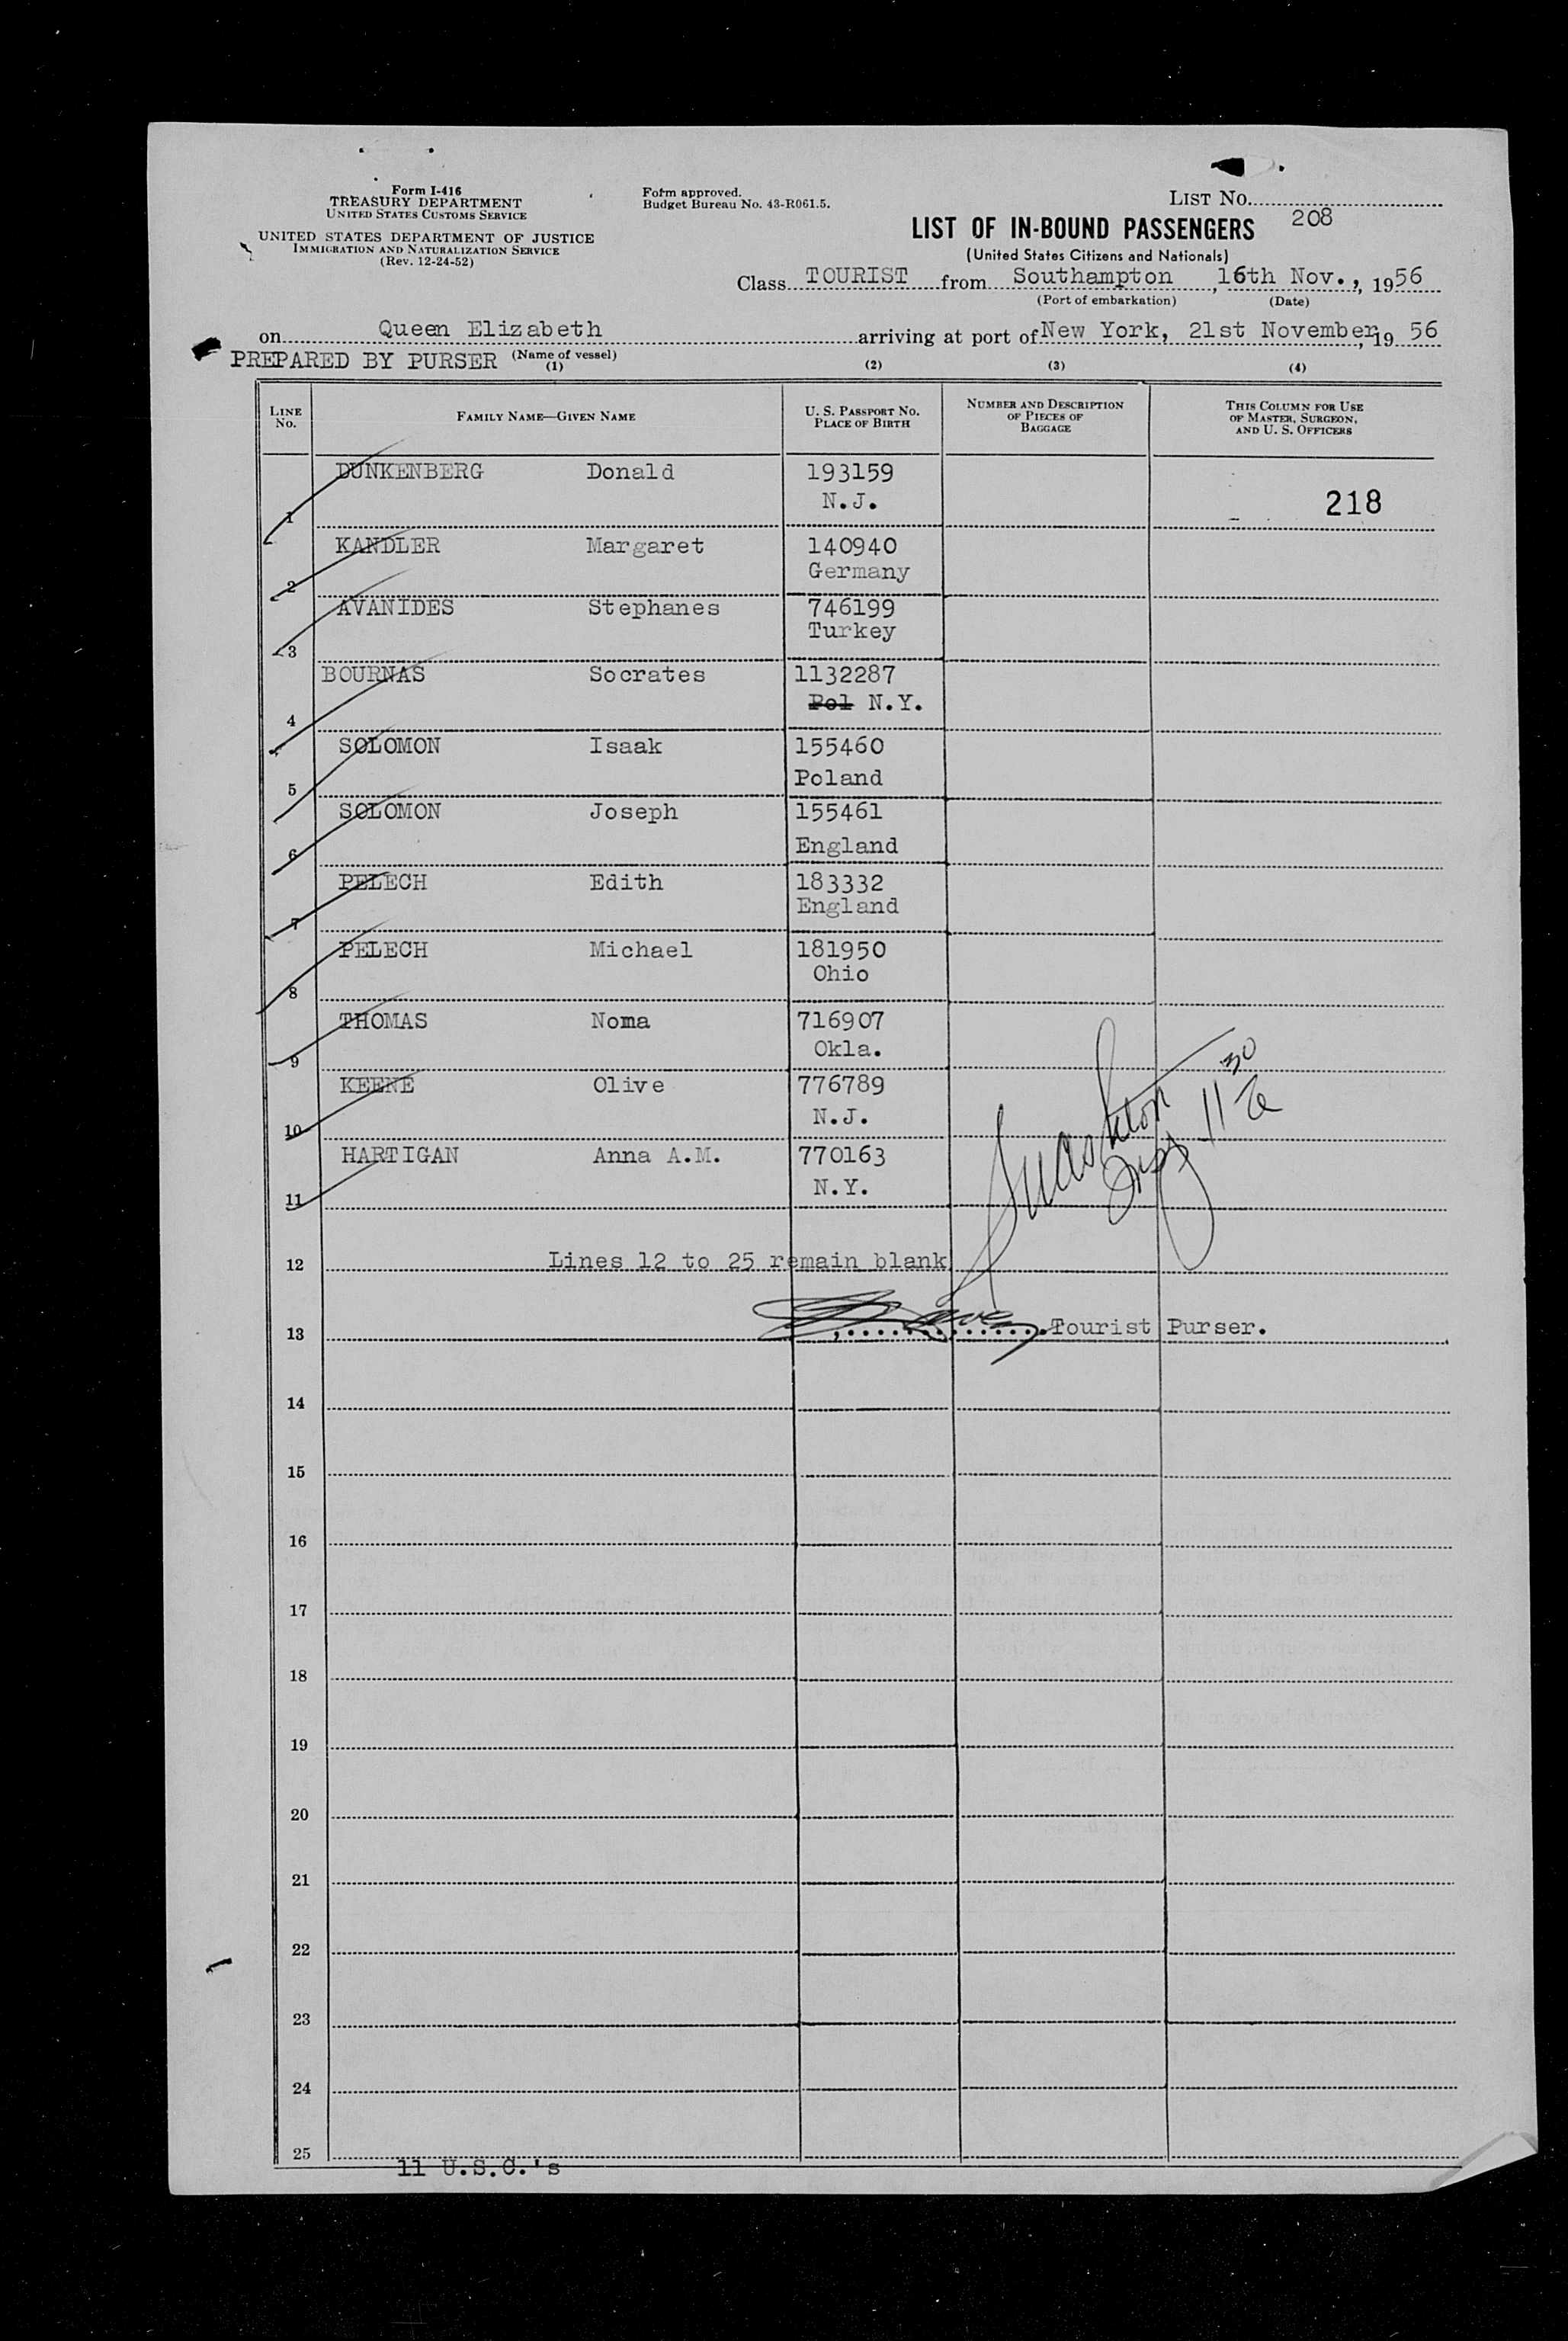 Form I-416
TREASURY DEPARTMENT
UNITED STATES CUSTOMS SERVICE
UNITED STATES DEPARTMENT OF JUSTICE
IMMIGRATION AND NATURALIZATION SERVICE
(Rev. 12-24-52)
Form approved.
Budget Bureau No. 43-R061.5.
LIST NO. 208
LIST OF IN-BOUND PASSENGERS
(United States Citizens and Nationals)
Class TOURIST from Southampton, 16th Nov., 1956
(Port of embarkation) (Date)
on Queen Elizabeth arriving at port of New York, 21st November, 19 56
PREPARED BY PURSER (Name of vessel)
(1) (2) (3) (4)
LINE NO. FAMILY NAME—GIVEN NAME U. S. PASSPORT NO. PLACE OF BIRTH NUMBER AND DESCRIPTION OF PIECES OF BAGGAGE THIS COLUMN FOR USE OF MASTER, SURGEON, AND U. S. OFFICERS
1 DUNKENBERG Donald 193159
N.J. 218
2 KANDLER Margaret 140940
Germany
3 AVANIDES Stephanes 746199
Turkey
4 BOURNAS Socrates 1132287
Pol N.Y.
5 SOLOMON Isaak 155460
Poland
6 SOLOMON Joseph 155461
England
7 PELECH Edith 183332
England
8 PELECH Michael 181950
Ohio
9 THOMAS Noma 716907
Okla.
10 KEENE Olive 776789
N.J.
11 HARTIGAN Anna A.M. 770163
N.Y.
12 Lines 12 to 25 remain blank
13 Tourist Purser.
14
15
16
17
18
19
20
21
22
23
24
25
11 U.S.C.'s